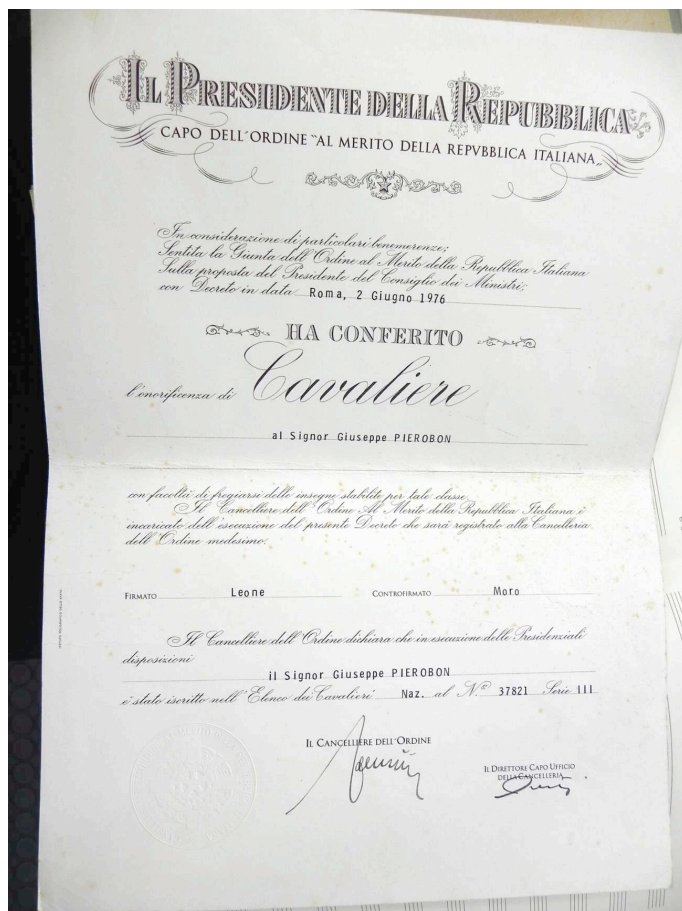 IL PRESIDENTE DELLA REPUBBLICA
CAPO DELL'ORDINE "AL MERITO DELLA REPVBBLICA ITALIANA„
In considerazione di particolari benemerenze;
Sentita la Giunta dell'Ordine al Merito della Repubblica Italiana
Sulla proposta del Presidente del Consiglio dei Ministri;
con Decreto in data Roma, 2 Giugno 1976
HA CONFERITO
l'onorificenza di Cavaliere
al Signor Giuseppe PIEROBON
con facoltà di fregiarsi delle insegne stabilite per tale classe.
Il Cancelliere dell'Ordine Al Merito della Repubblica Italiana è
incaricato dell'esecuzione del presente Decreto che sarà registrato alla Cancelleria
dell'Ordine medesimo.
FIRMATO Leone CONTROFIRMATO Moro
Il Cancelliere dell'Ordine dichiara che in esecuzione delle Presidenziali
disposizioni
il Signor Giuseppe PIEROBON
è stato iscritto nell'Elenco dei Cavalieri Naz. al N.° 37821 Serie III
IL CANCELLIERE DELL'ORDINE
IL DIRETTORE CAPO UFFICIO
DELLA CANCELLERIA